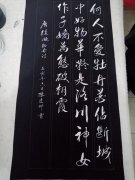 何人不爱牡丹花占断城
中好物華疑是洛川神女
作千嬌万態破朝霞
唐徐凝